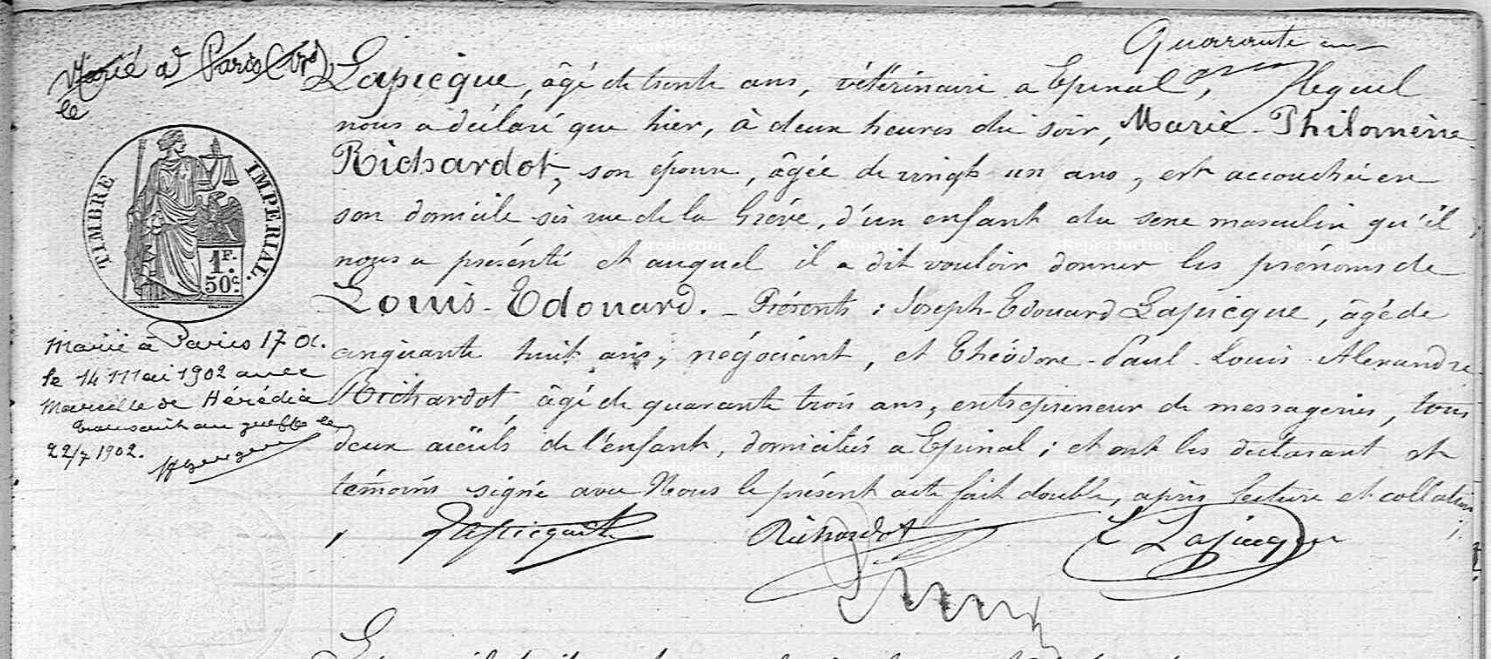 Quarante un
Marié à Paris (
le
Lapicque, âgé de trente ans, vétérinaire à Epinal, lequel
nous a déclaré que hier, à deux heures du soir, Marie-Philomène
Richardot, son épouse, âgée de vingt un ans, est accouchée en
son domicile sis rue de la Grève, d'un enfant du sexe masculin qu'il
nous a présenté et auquel il a dit vouloir donner les prénoms de
Louis-Edouard. _ Présents : Joseph-Edouard Lapicque, âgé de
cinquante huit ans, négociant, et Théodore-Paul-Louis-Alexandre
Richardot, âgé de quarante trois ans, entrepreneur de messageries, tous
deux aïeuls de l'enfant, domiciliés à Epinal ; et ont les déclarant et
témoins signé avec Nous le présent acte fait double, après lecture et collation
TIMBRE IMPERIAL.
1F.
50c
Marié à Paris 17 a.
le 14 Mai 1902 avec
Marcelle de Hérédia
transcrit au greffe le
22/7 1902.
Lapicque
Richardot
C Lapicque
©Reproduction